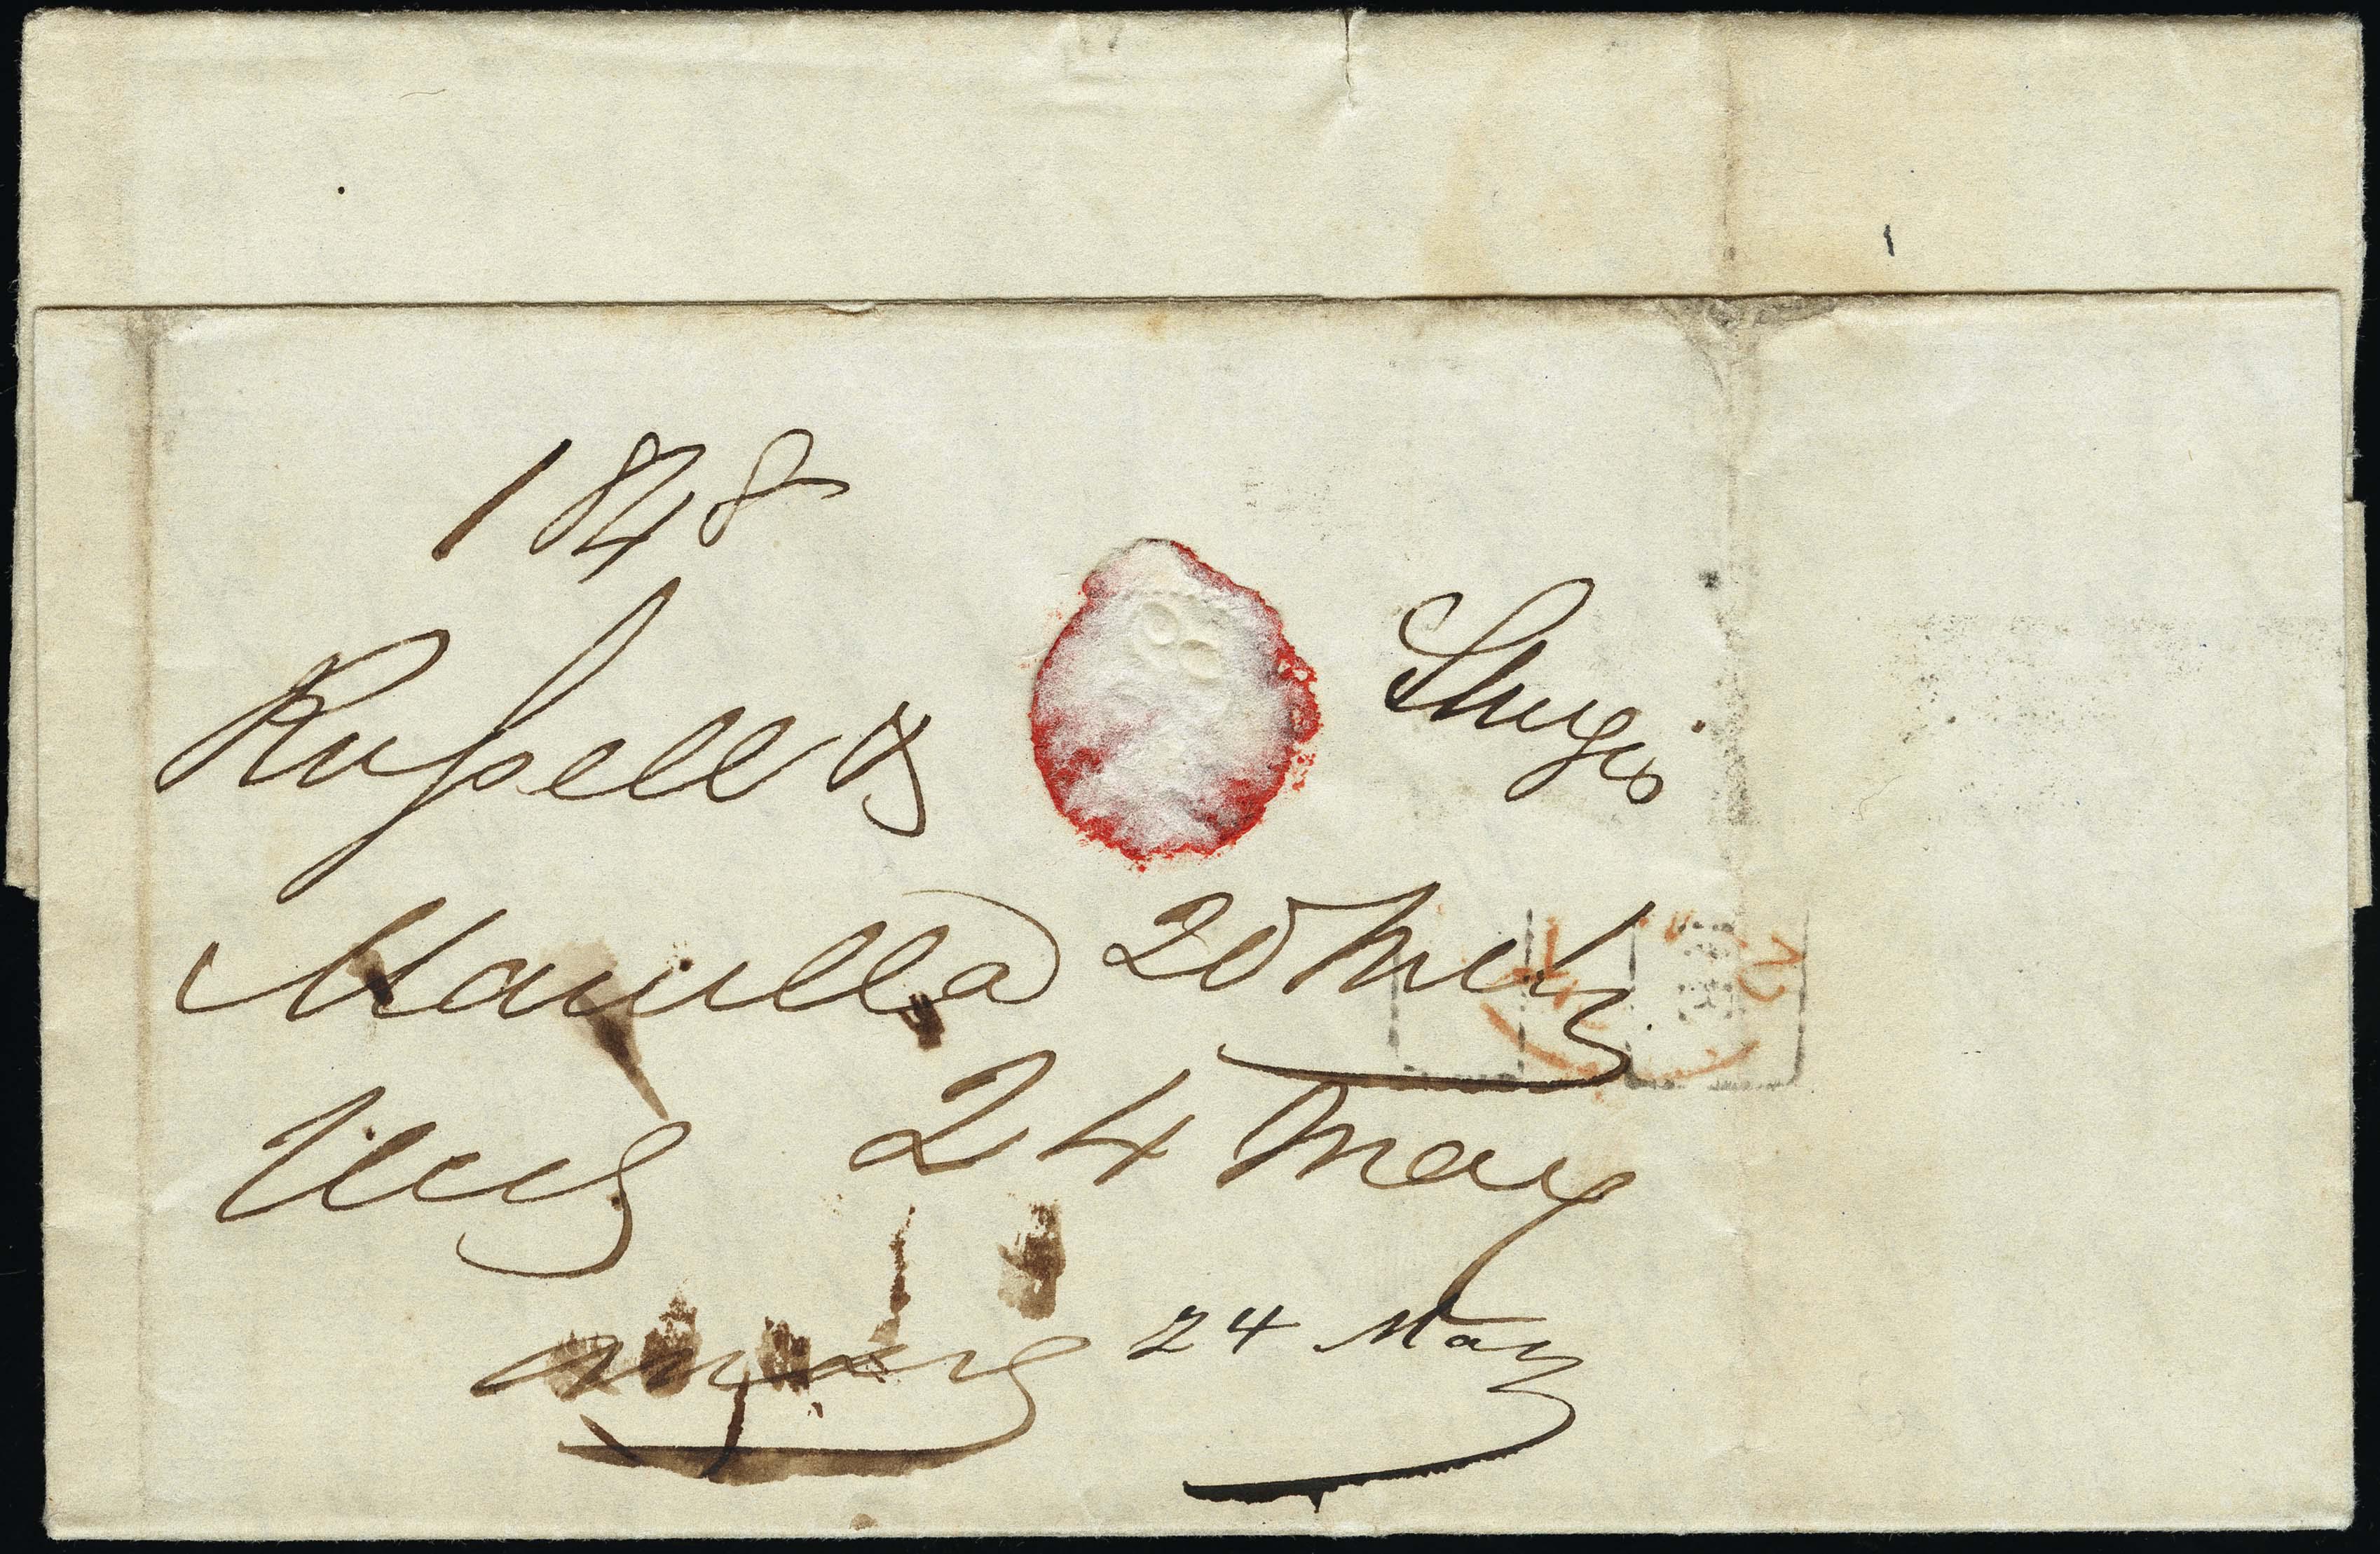 1848
Russell & Sturgis
Manilla 20 Mch
Recd 24 May
Ansd 24 May